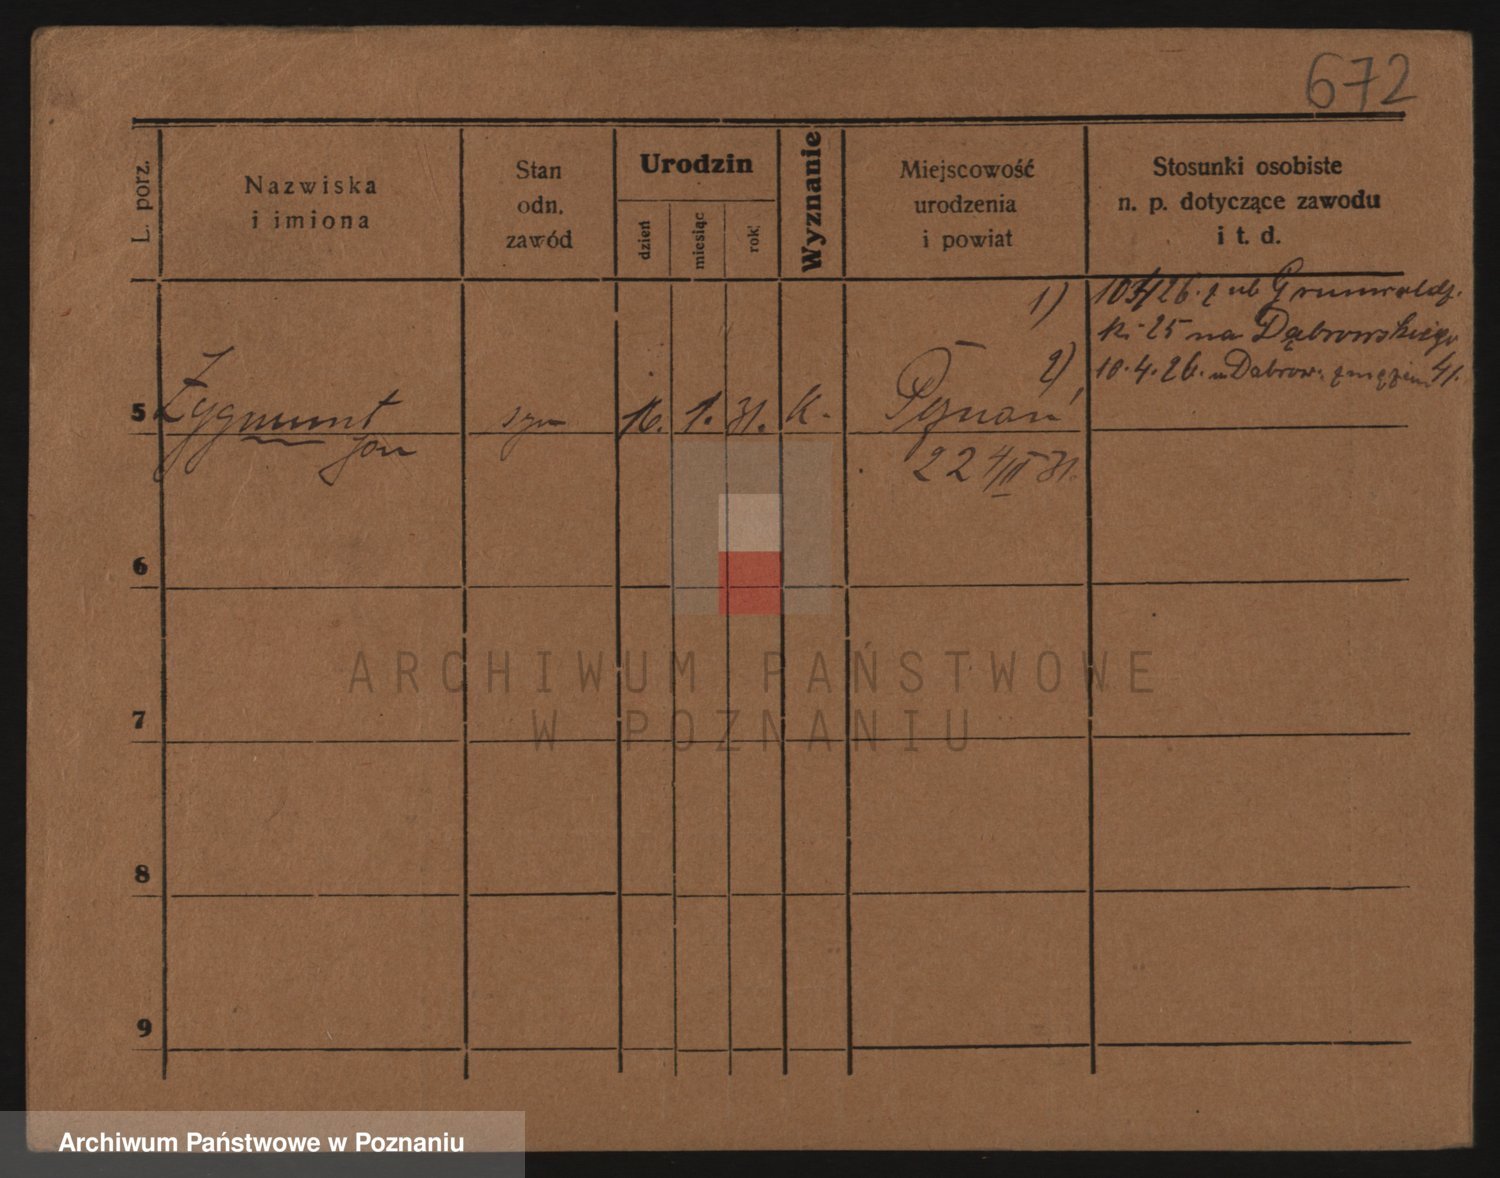 672
L. porz.
Nazwiska
i imiona
Stan
odn.
zawód
Urodzin
dzień
miesiąc
rok
Wyznanie
Miejscowość
urodzenia
i powiat
Stosunki osobiste
n. p. dotyczące zawodu
i t. d.
1)
26. z ul. Grunwaldz.
25 na Dąbrowskiego
2)
10.4.26. Dąbrow. 41.
5 Zygmunt syn 16. 1. 31. k. Poznań
Jan
224/II 31.
6
7
8
9
ARCHIWUM PAŃSTWOWE
W POZNANIU
Archiwum Państwowe w Poznaniu